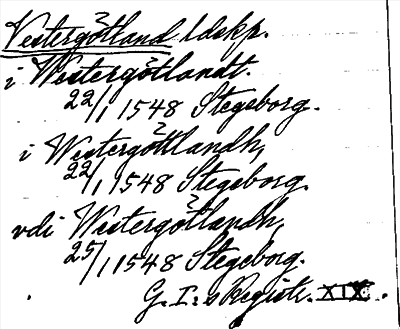 Vestergötland ldskp.
i Westergötlandt.
22/1 1548 Stegeborg.
i Westergöttlandh,
22/1 1548 Stegeborg.
vdi Westergötlandh,
25/1 1548 Stegeborg.
G. I:s Registr. XIX.